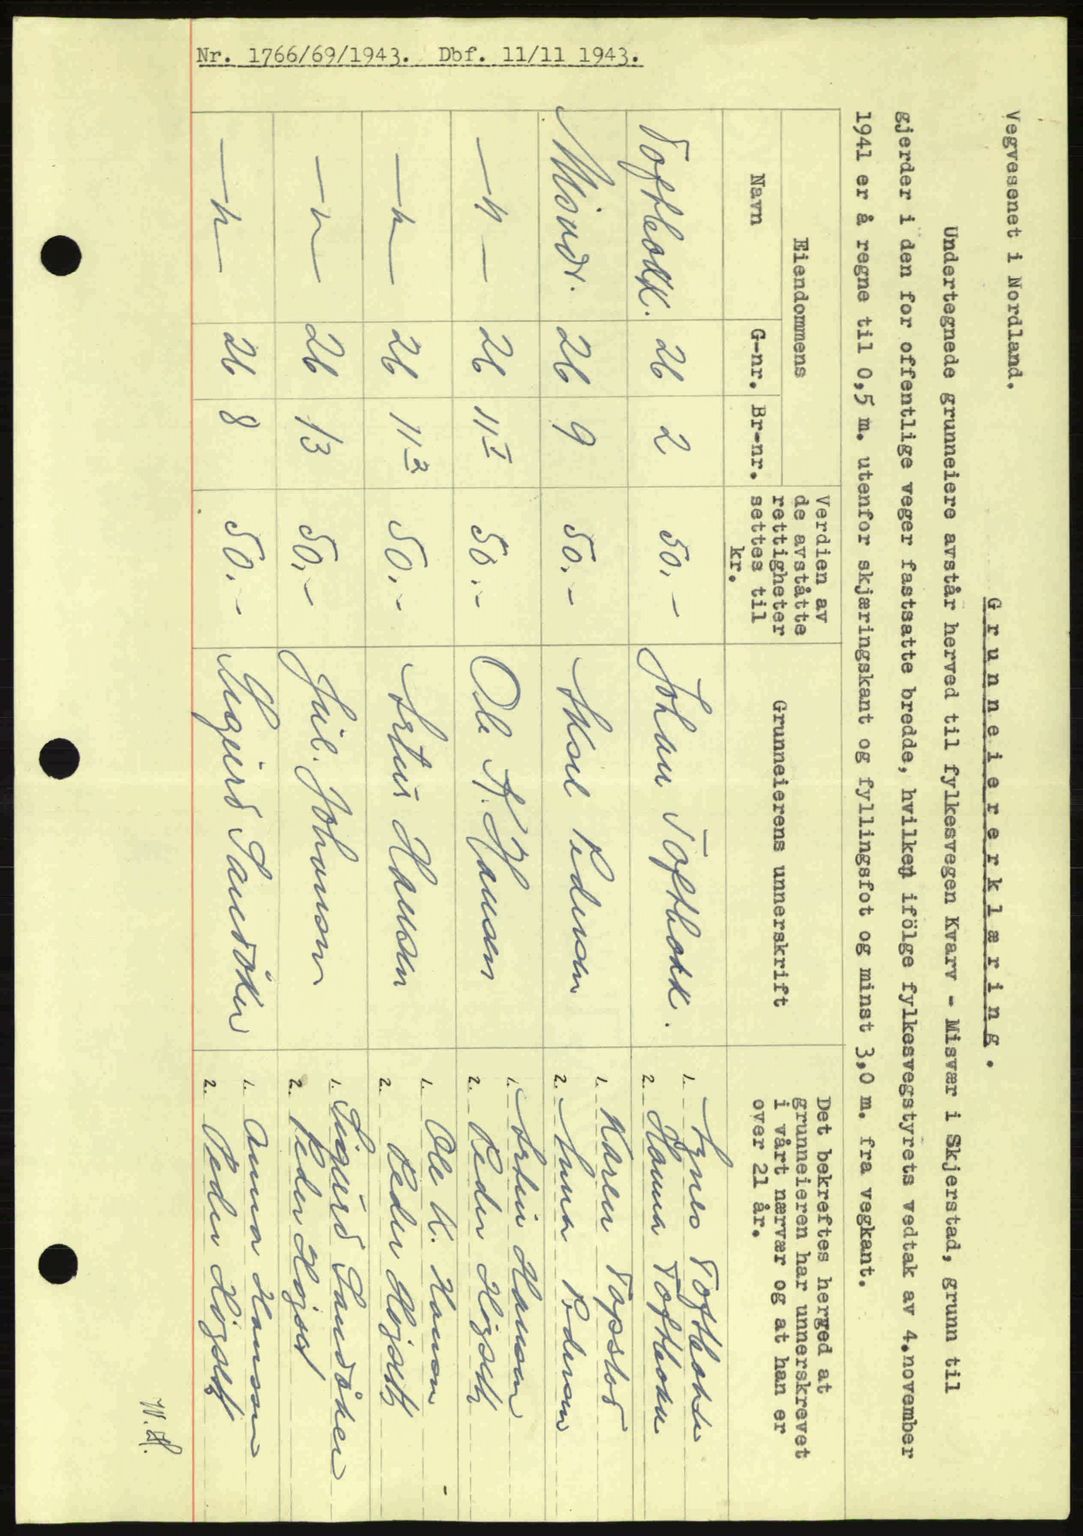 Nr. 1766/69/1943. Dbf. 11/11 1943.
Vegvesenet i Nordland.
Grunneiererklæring.
Undertegnede grunneiere avstår herved til fylkesvegen Kvarv - Misvær i Skjerstad, grunn til
gjerder i den for offentlige veger fastsatte bredde, hvilken ifölge fylkesvegstyrets vedtak av 4.november
1941 er å regne til 0,5 m. utenfor skjæringskant og fyllingsfot og minst 3,0 m. fra vegkant.
Eiendommens
Navn G-nr. Br-nr.
Verdien av
de avståtte
rettigheter
settes til
kr.
Grunneierens unnerskrift
Det bekreftes herved at
grunneieren har unnerskrevet
i vårt nærvær og at han er
over 21 år.
26 2 50.- Johan
1.
2. Hanna
26 9 50.- Aksel Pedersen
1. Karen
2. Anna Pedersen
-"- 26 11 1 50.- Ole K. Hansen
1. Artur Hansen
2. Peder
-"- 26 11 2 50.- Artur Hansen
1. Ole K. Hansen
2. Peder
-"- 26 13 50.- Jul. Johansen
1. Sigurd Sandåker
2. Peder
-"- 26 8 50.- Sigurd Sandåker
1. Anna Hansen
2. Peder